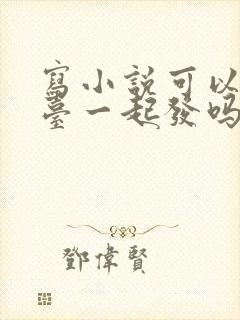 寫小說可以
臺一起發嗎
鄧偉賢